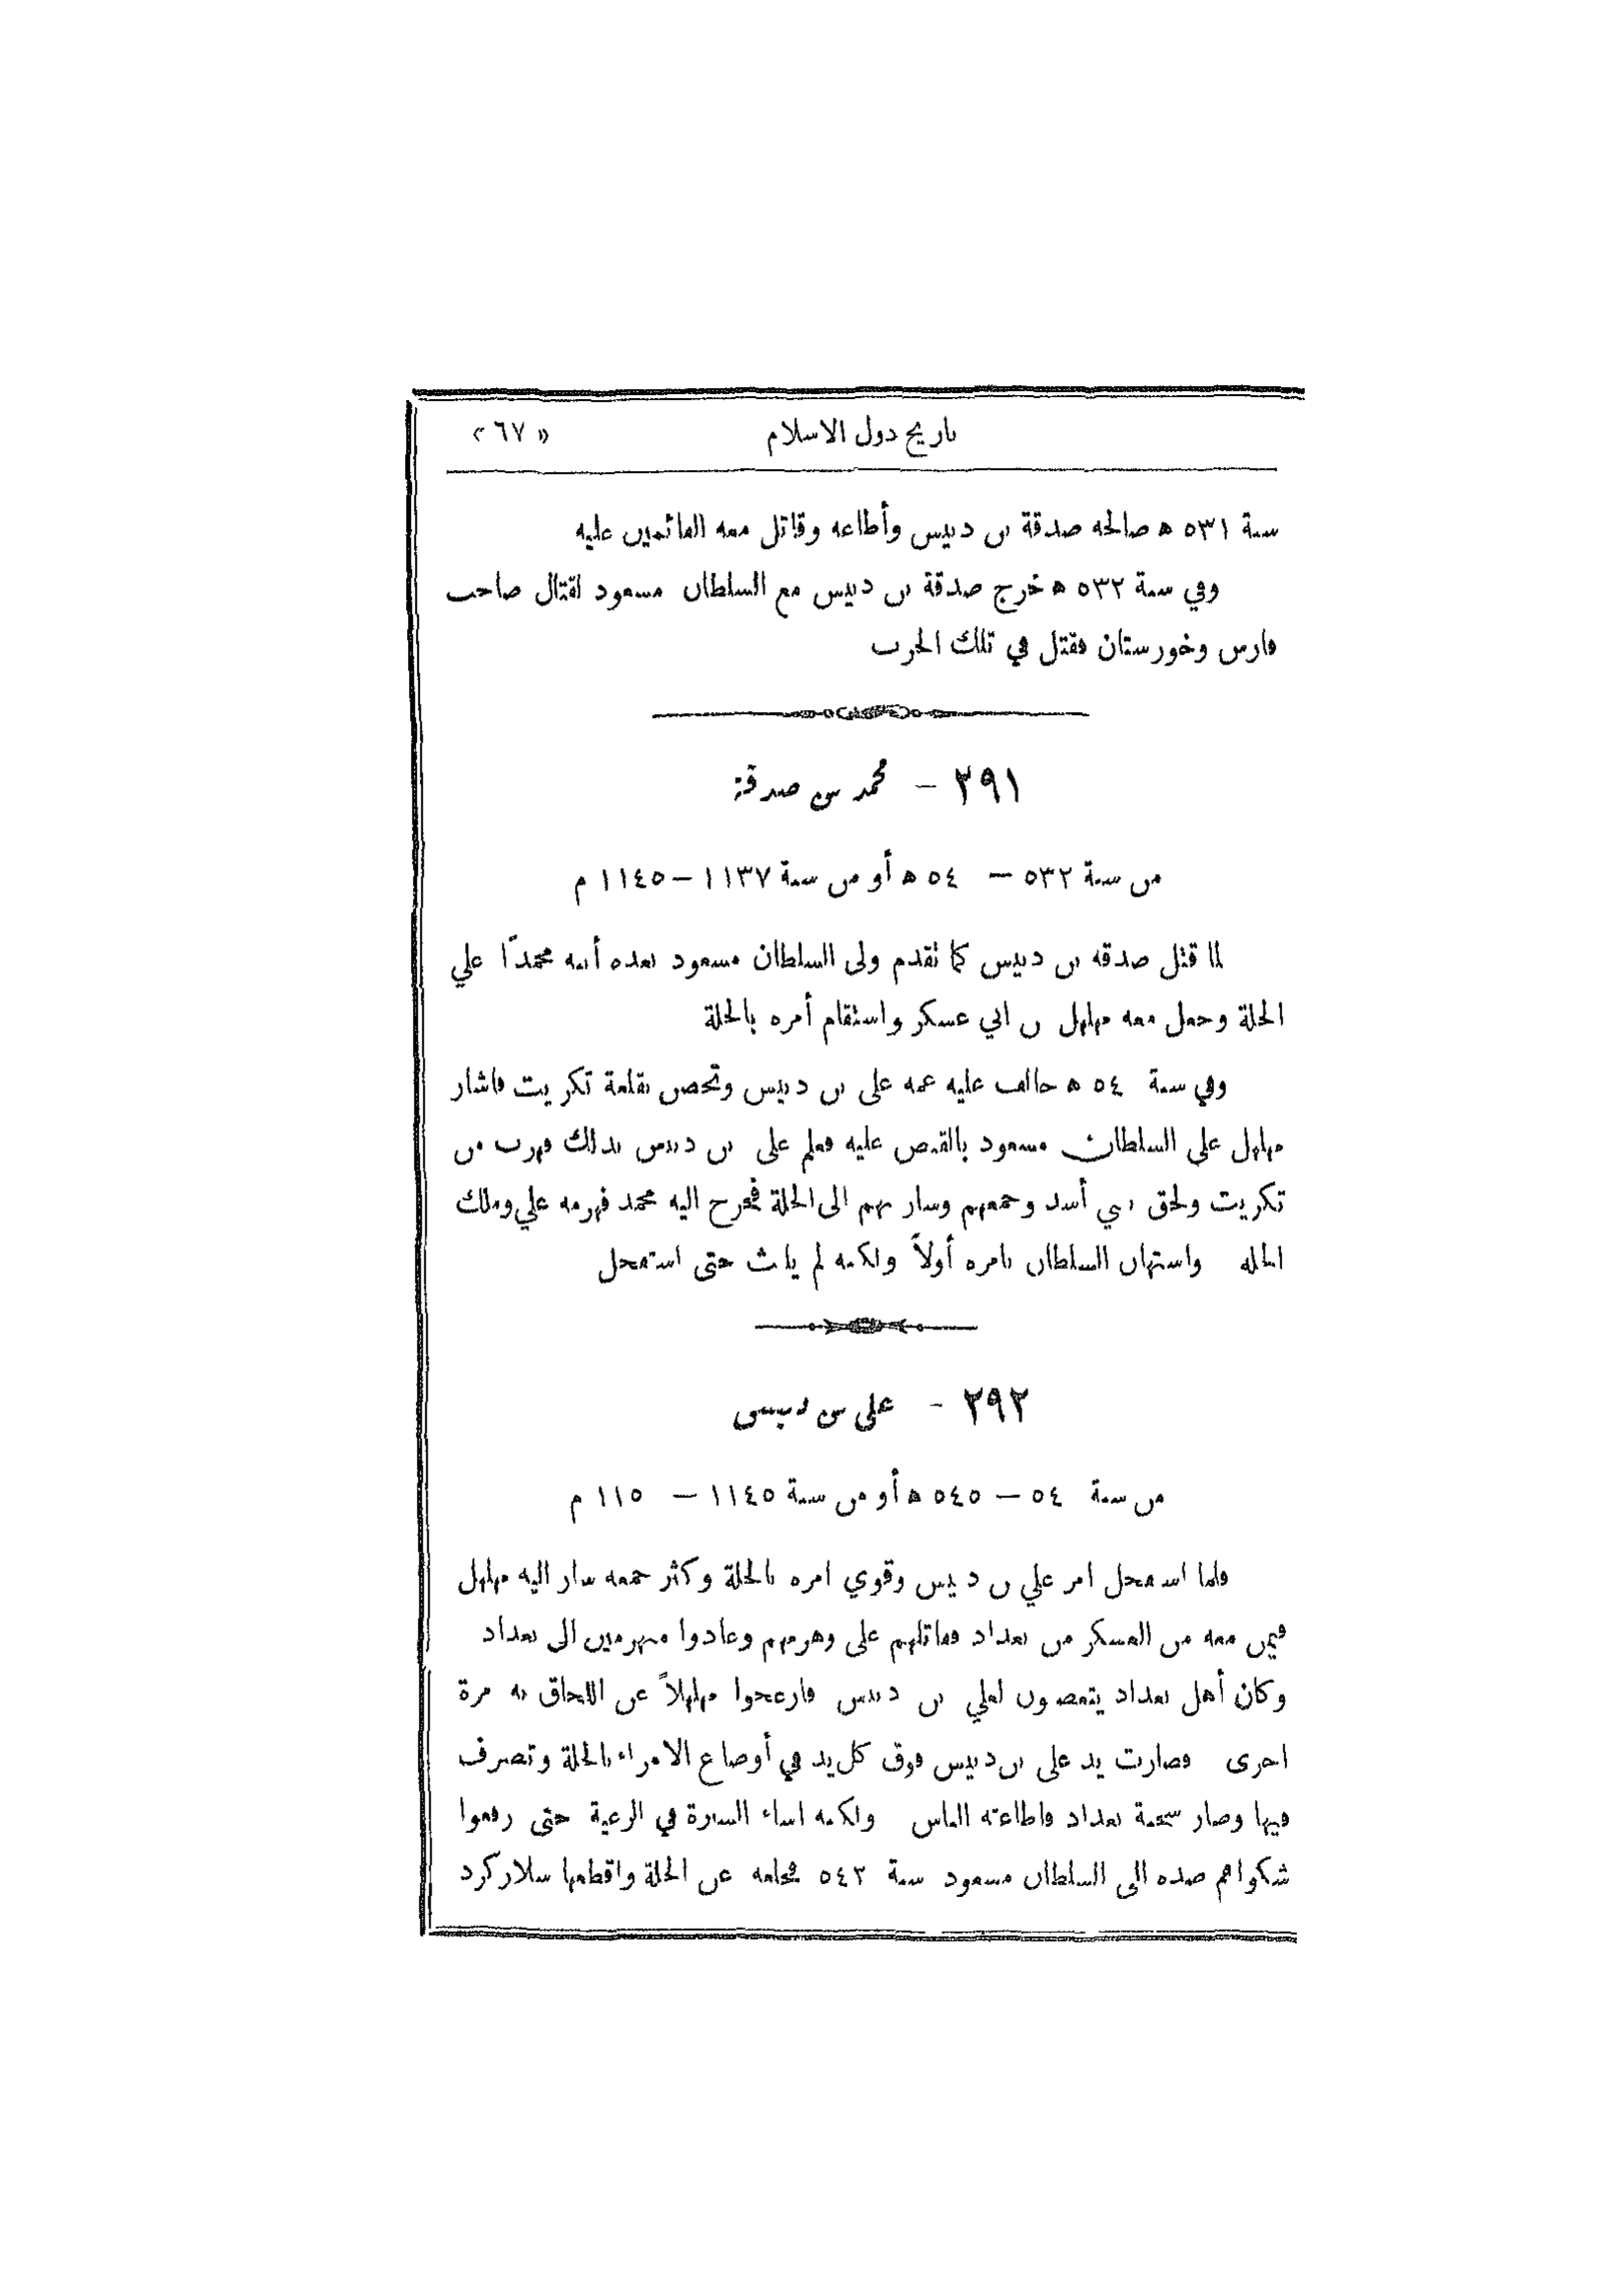 تاريخ دول الاسلام «٦٧»
سنة ٥٣١ ه صالحه صدقة بن دبيس وأطاعه وقاتل معه القائمين عليه
وفي سنة ٥٣٢ ه خرج صدقة بن دبيس مع السلطان مسعود لقتال صاحب
فارس وخورستان فقتل في تلك الحرب
٢٩١ – محمد بن صدقة
من سنة ٥٣٢ – ٥٤ ه أو من سنة ١١٣٧ – ١١٤٥ م
لما قتل صدقه بن دبيس كما تقدم ولى السلطان مسعود بعده أبنه محمدًّا علي
الحلة وجعل معه مهلهل بن ابي عسكر واستقام أمره بالحلة
وفي سنة ٥٤ ه خالف عليه عمه على بن دبيس وتحصن بقلعة تكريت فاشار
مهلهل على السلطان مسعود بالقبض عليه فعلم على بن دبيس بذلك فهرب من
تكريت ولحق ببني أسد وجمعهم وسار بهم الى الحلة فخرج اليه محمد فهزمه علي وملك
الحلة واستهان السلطان بامره أولاً ولكنه لم يلبث حتى استفحل
٢٩٢ – على بن دبيس
من سنة ٥٤ – ٥٤٥ ه أو من سنة ١١٤٥ – ١١٥ م
فلما استفحل امر علي بن دبيس وقوي امره بالحلة وكثر جمعه سار اليه مهلهل
فيمن معه من العسكر من بغداد فقاتلهم على وهزمهم وعادوا منهزمين الى بغداد
وكان أهل بغداد يتعصبون لعلي بن دبيس فازعجوا مهلهلاً عن اللحاق به مرة
اخرى وصارت يد على بن دبيس فوق كل يد في أوضاع الامراء بالحلة وتصرف
فيها وصار شحنة بغداد فاطاعته الناس ولكنه اساء السيرة في الرعية حتى رفعوا
شكواهم ضده الى السلطان مسعود سنة ٥٤٢ فخلعه عن الحلة واقطعها سلاركرد